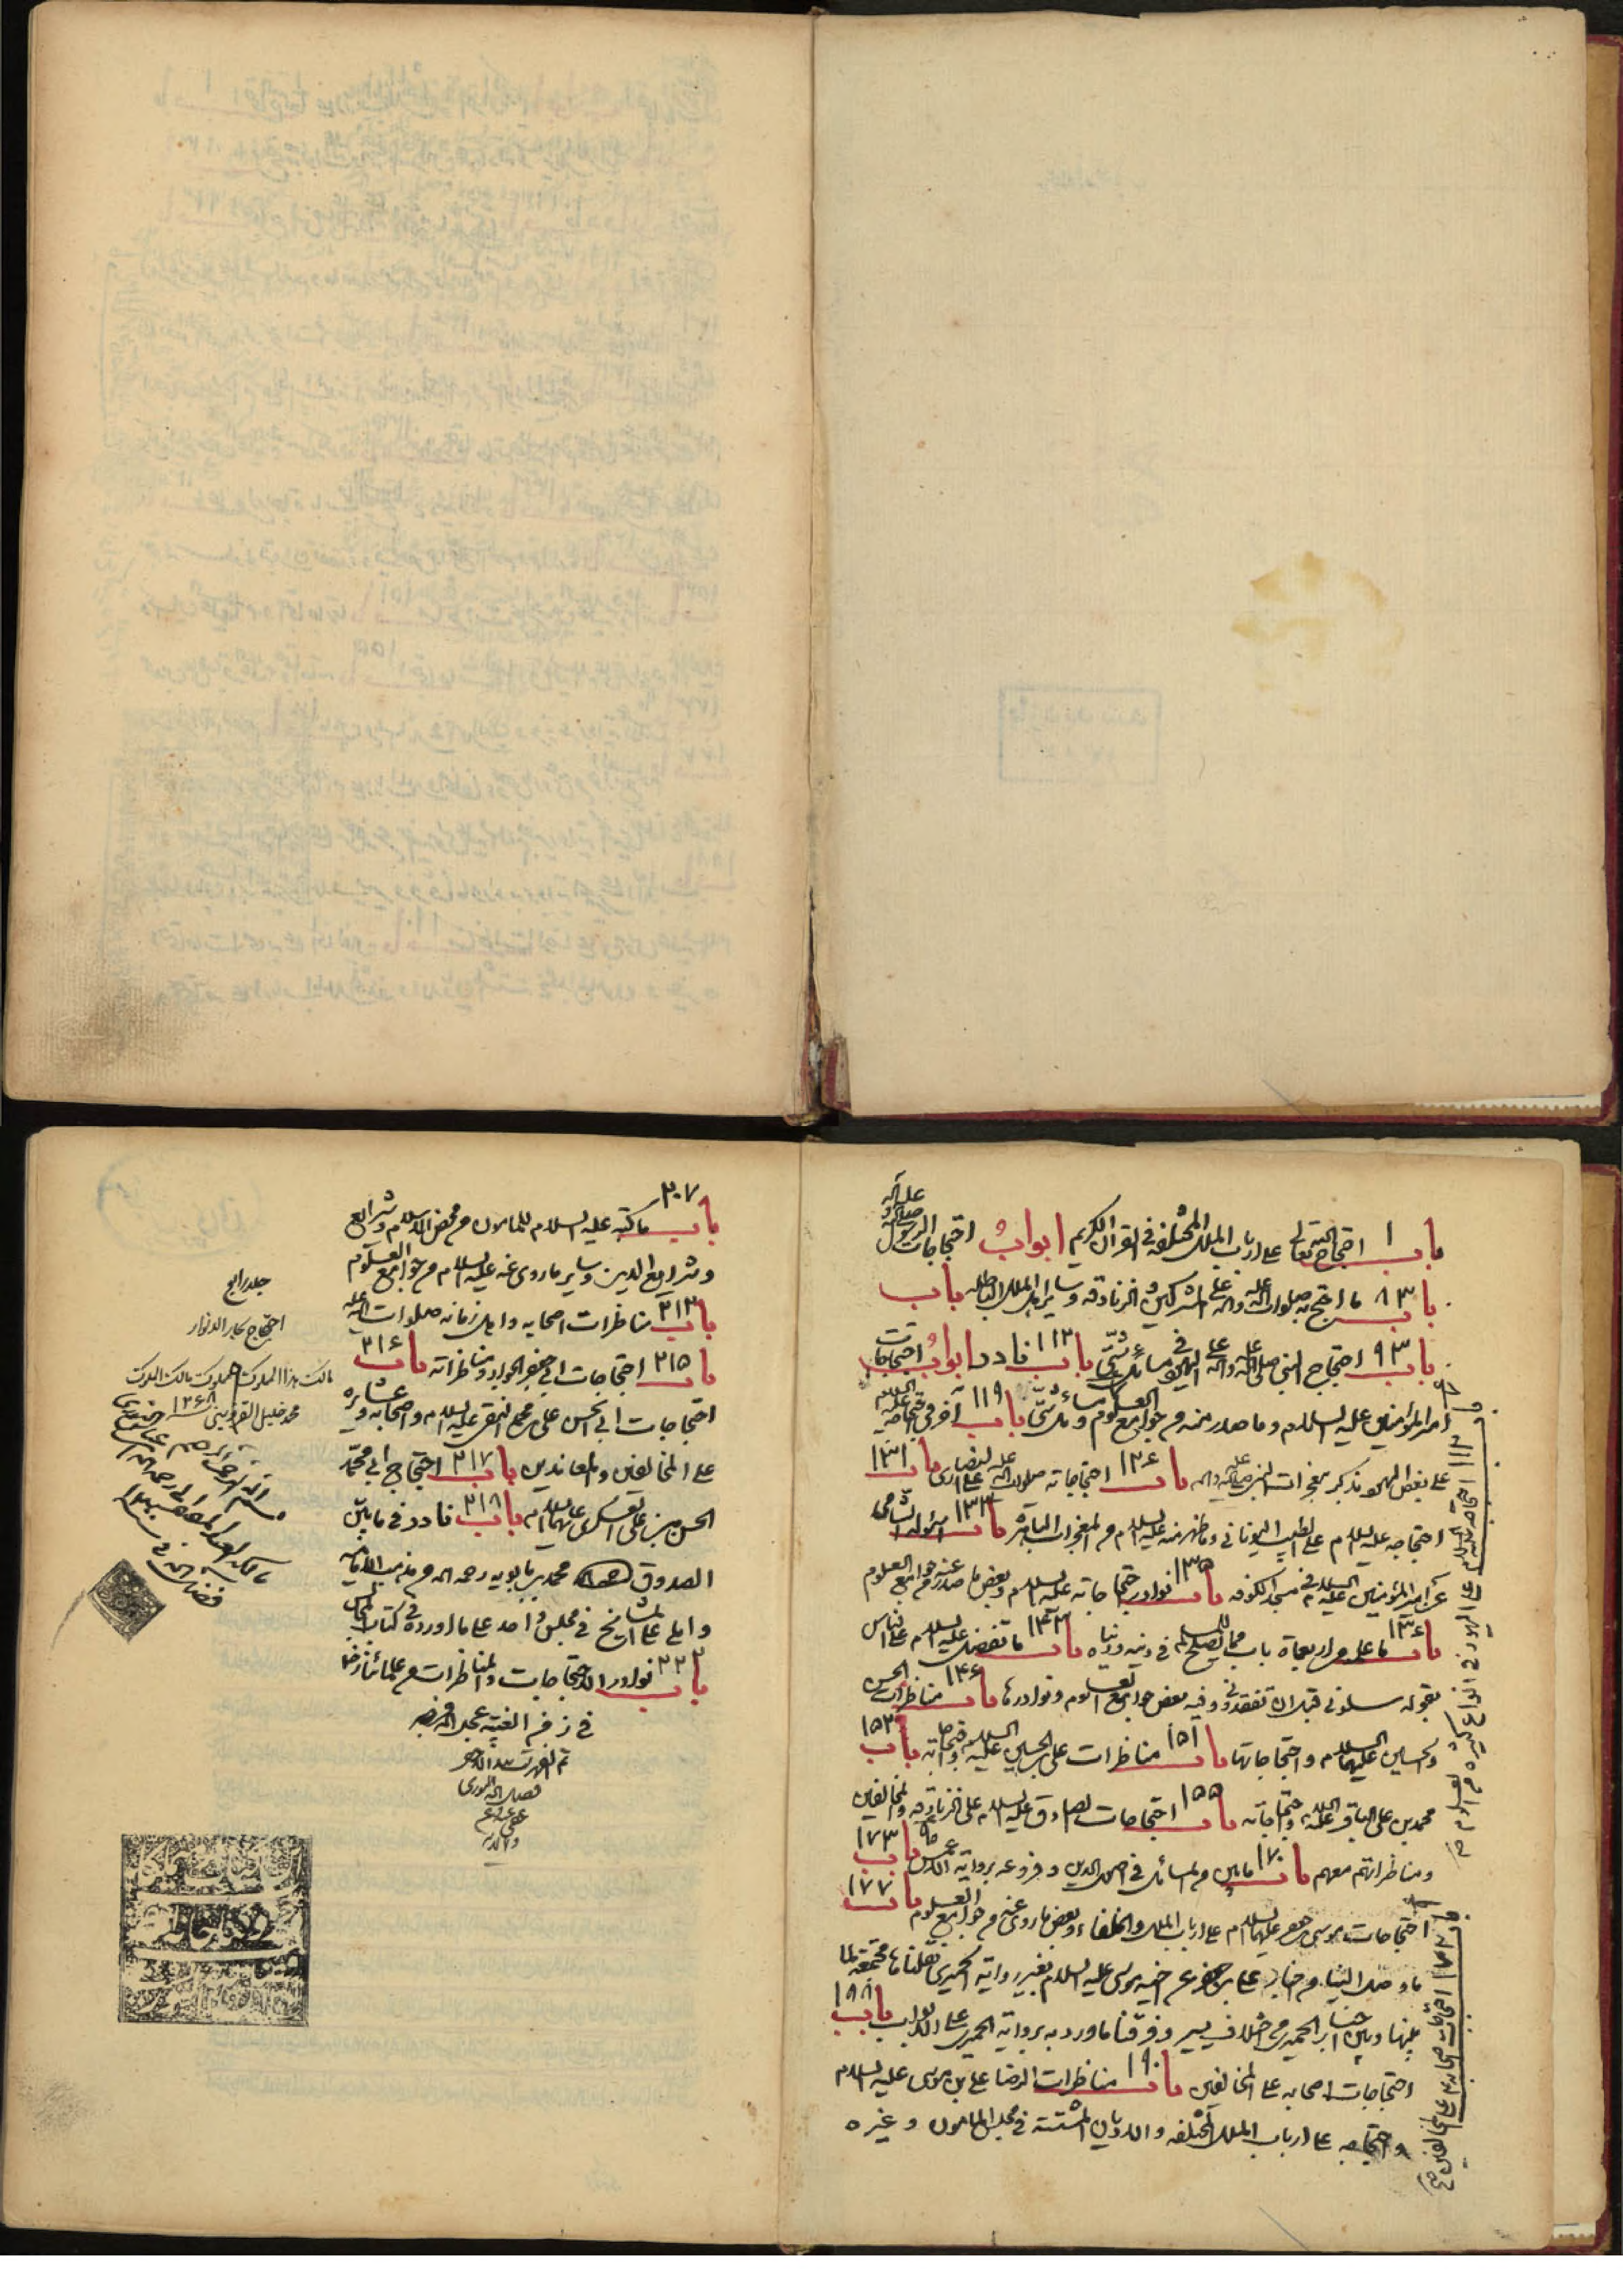 باب ١ احتجاج الله تعالى على ارباب الملل المختلفة فى القرآن الكريم ابواب احتجاجات الرسول صلى الله عليه وآله
باب ٨٣ ما احتج به صلوات الله عليه وآله على المشركين والزنادقه وساير اهل الملل الباطله باب
باب ٩٣ احتجاج النبى صلى الله عليه وآله على اليهود فى مسائل شتى باب ١١٢ نادر ابواب احتجاجات
امير المؤمنين عليه السلام وما صدر منه من جوامع العلوم ومسائل شتى باب ١١٩ آخر فى احتجاجه عليه السلام
على بعض اليهود بذكر معجزات النبى صلى الله عليه وآله باب ١٢٦ احتجاجاته صلوات الله عليه على النصارى باب ١٣١
احتجاجه عليه السلام على الطبيب اليونانى وما ظهر منه عليه السلام من المعجزات الباهره باب ١٣٣ اسئولة الشامى
عن امير المؤمنين عليه السلام فى مسجد الكوفه باب ١٣٥ نوادر احتجاجاته عليه السلام وبعض ما صدر عنه من جوامع العلوم
باب ١٣٦ ما علمه من اربعمأة باب مما يصلح للمسلم فى دينه ودنياه باب ١٤٣ ما تفضل عليه السلام على الناس
بقوله سلونى قبل ان تفقدونى وفيه بعض جوامع العلوم ونوادرها باب ١٤٦ مناظرات الحسن
والحسين عليهما السلام واحتجاجاتهما باب ١٥١ مناظرات على بن الحسين عليه السلام واحتجاجاته باب ١٥٣
محمد بن على الباقر عليه السلام واحتجاجاته باب ١٥٥ احتجاجات الصادق عليه السلام على الزنادقه والمخالفين
ومناظراتهم معهم باب ١٧٠ ما بين من المسائل فى اصول الدين وفروعه برواية الاعمش باب ١٧٣
احتجاجات موسى بن جعفر عليهما السلام على ارباب الملل والخلفاء وبعض ما روى عنه من جوامع العلوم باب ١٧٧
ما وصل الينا من اخبار على بن جعفر عن اخيه موسى عليه السلام بغير رواية الحميرى نقلناها مجتمعة لما
بينها وبين اخبار الحميرى من اختلاف يسير وفرقنا ما ورد برواية الحميرى على الابواب باب ١٨٨
احتجاجات اصحابه على المخالفين باب ١٩٠ مناظرات الرضا على بن موسى عليه السلام
واحتجاجه على ارباب الملل المختلفه والاديان المشتتة فى مجلس المامون وغيره
باب ٢٠٧ ما كتبه عليه السلام للمامون من محض الاسلام وشرايع
وشرايع الدين وساير ما روى عنه عليه السلام من جوامع العلوم
باب ٢١٣ مناظرات اصحابه واهل زمانه صلوات الله عليه
باب ٢١٥ احتجاجات ابى جعفر الجواد ومناظراته باب ٢١٦
احتجاجات ابى الحسن على بن محمد النقى عليه السلام واصحابه وعشايره
على المخالفين والمعاندين باب ٢١٧ احتجاج ابى محمد
الحسن بن على العسكرى عليهما السلام باب ٢١٨ نادر فى ما بين
الصدوق محمد بن بابويه رحمه الله من مذهب الاماميه
واملى على المشايخ فى مجلس واحد على ما اورده فى كتاب المجالس
باب ٢٢٢ نوادر الاحتجاجات والمناظرات من علمائنا رض
فى زمن الغيبة عجل الله فرجه
تم الفهرست
فضل الله النورى
عفى عنه
جلد رابع
احتجاج بحار الانوار
مالك هذا المملوك المملوك مالك الملوك
محمد خليل القزوينى ١٢٦٨
بسم الله الرحمن الرحيم